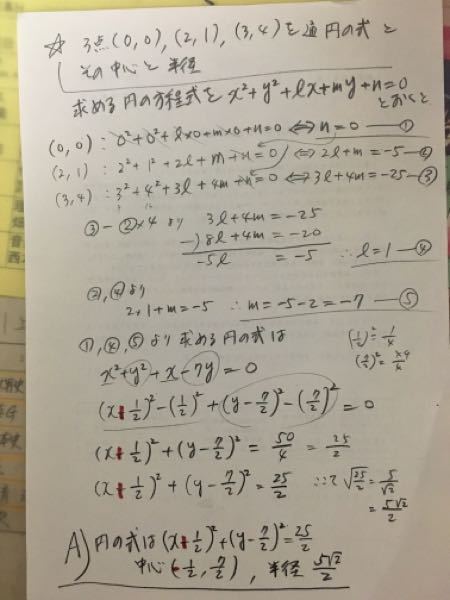 ☆ 3点(0,0), (2,1), (3,4)を通円の式と
その中心と半径
求める円の方程式を x²+y²+lx+my+n=0
とおくと
(0,0) : 0²+0²+l×0+m×0+n=0 ⇔ n=0 ―①
(2,1) : 2²+1²+2l+m+n=0 ⇔ 2l+m=-5 ―②
(3,4) : 3²+4²+3l+4m+n=0 ⇔ 3l+4m=-25 ―③
③-②×4 より 3l+4m=-25
-) 8l+4m=-20
-5l =-5 ∴ l=1 ―④
②,④より
2・1+m=-5 ∴ m=-5-2=-7 ―⑤
①,④,⑤より 求める円の式は
(1/2)²=1/4
x²+y²+x-7y=0
(x+1/2)²-(1/2)²+(y-7/2)²-(7/2)²=0
(x+1/2)²+(y-7/2)²=50/4=25/2
(x+1/2)²+(y-7/2)²=25/2 ここで √25/2=5/√2
=5√2/2
A) 円の式は(x+1/2)²+(y-7/2)²=25/2
中心(-1/2, 7/2), 半径 5√2/2